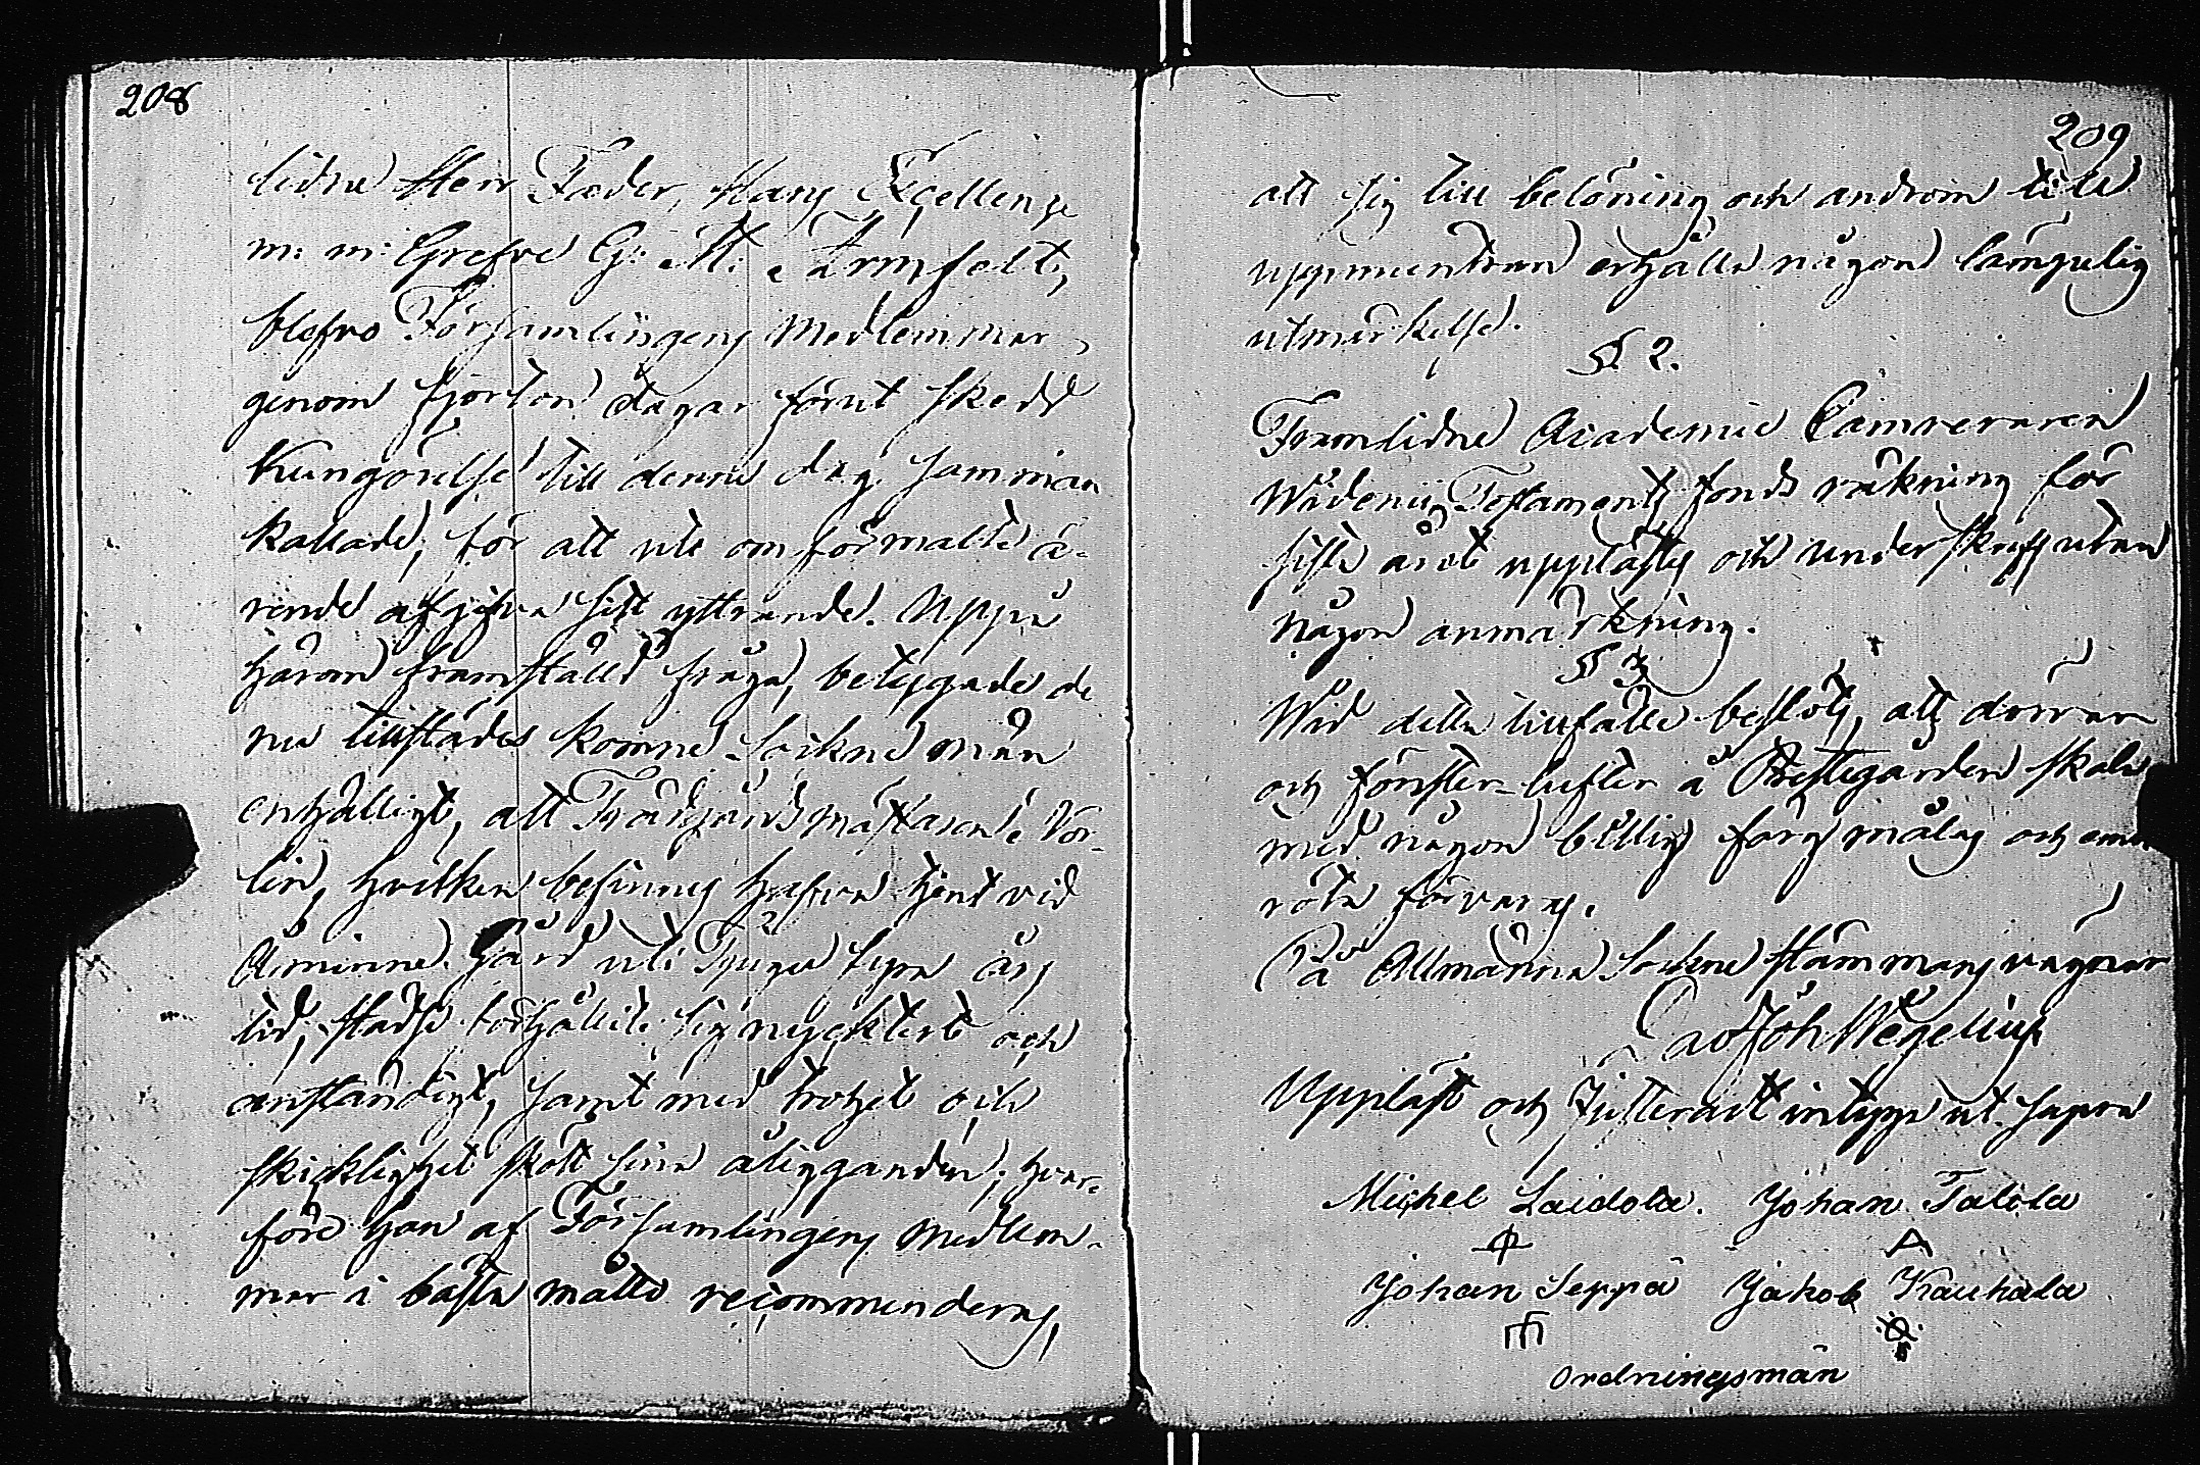 208
lidne Herr Fader, Hans Excellence
m: m: Grefve G: M: Armfelt,
blefvo Församlingens Medlemmar,
genom fjorton dagar förut skedd
Kungörelse till denne dag samman
kallade, för att uti omförmälte ä-
rende afgifva sitt yttrande. Uppå
härom framställd fråga, betygade de
nu tillstädes komne Sockne män
enhälligt, att Trädgårdsmästaren
lin, hvilken befinnes hafva tjent vid
Åminne Gård uti Tjugu fyra års
tid, städse förhållit sig nycktert och
anständigt, samt med trohet och
skicklighet skött sina åligganden; hvar-
före han af Församlingens Medlem-
mar i bästa måtto recommenderas,
209
att sig till belöning och androm till
uppmuntran erhålla någon lämpelig
utmärkelse.
§. 2.
Framlidne Academie Camreraren
Widenii Testaments fonds räkning för
sista året upplästes och underskrefs utan
någon anmärkning.
§ 3
Wid detta tillfälle beslöts, att dörrar
och fönster-lufter å Prestegården skola
med någon billig färg målas och emot
röta förvaras.
På Allmänna Sockne stämmans vägnar
Joh Wegelius
Uppläst och Justeradt intyga ut supra
Michel Laidola. Johan Talola
Johan Seppä Jakob Kauhala
Ordningsmän